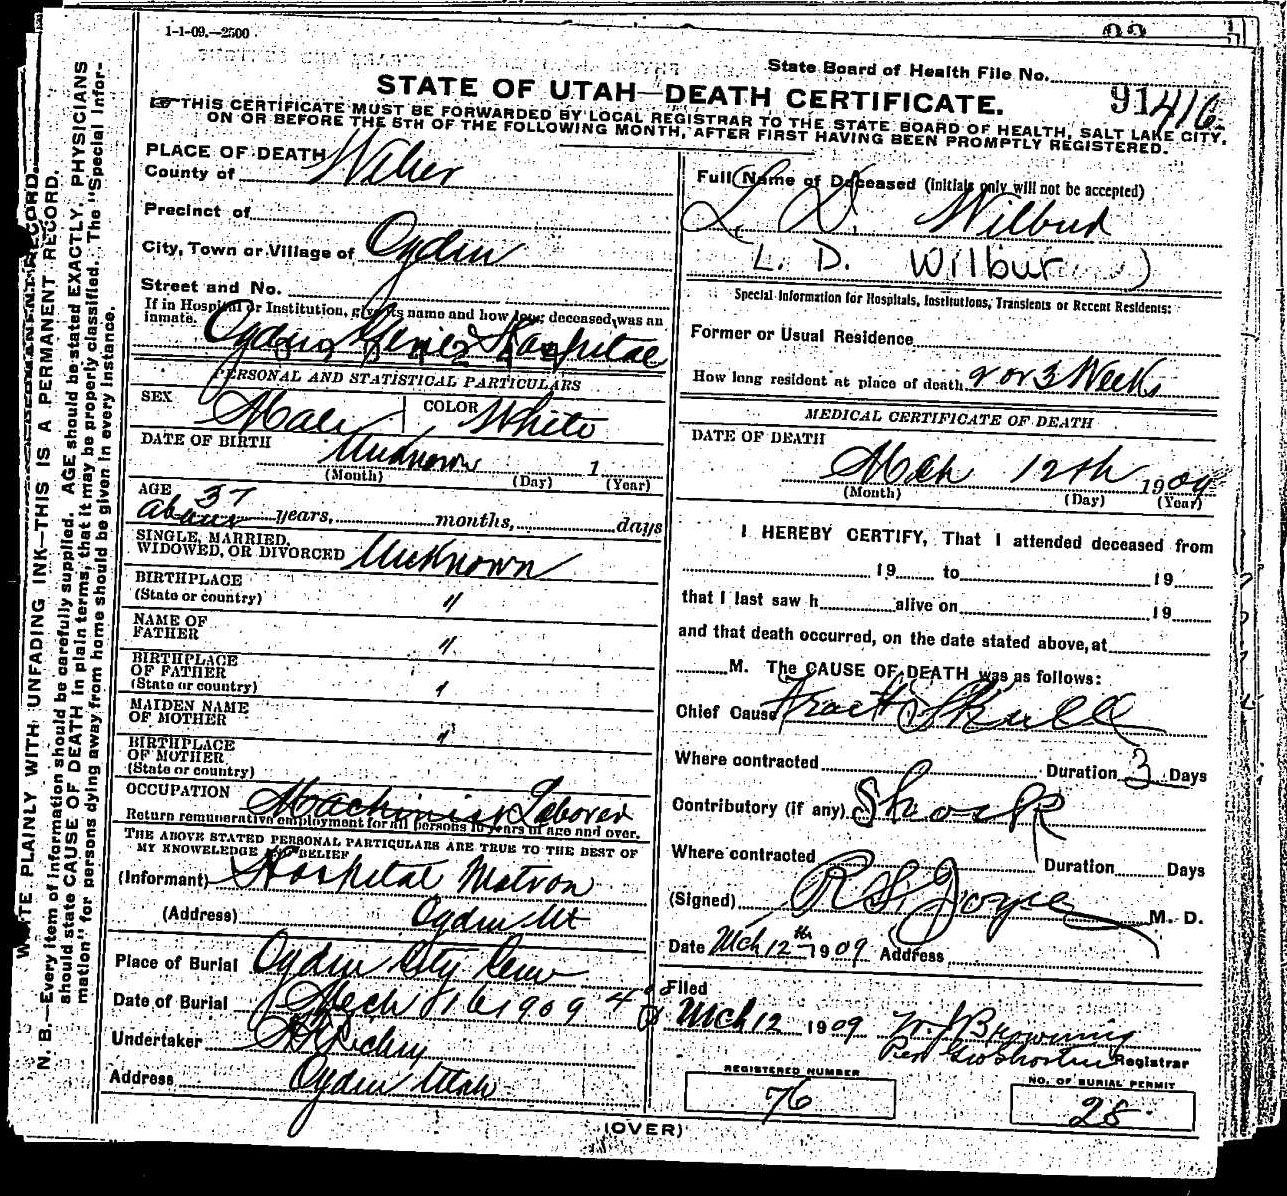 1-1-09.—2500
State Board of Health File No.
91 416
STATE OF UTAH—DEATH CERTIFICATE.
THIS CERTIFICATE MUST BE FORWARDED BY LOCAL REGISTRAR TO THE STATE BOARD OF HEALTH, SALT LAKE CITY,
ON OR BEFORE THE 5TH OF THE FOLLOWING MONTH, AFTER FIRST HAVING BEEN PROMPTLY REGISTERED.
WRITE PLAINLY WITH UNFADING INK—THIS IS A PERMANENT RECORD.
N. B.—Every item of information should be carefully supplied. AGE should be stated EXACTLY, PHYSICIANS
should state CAUSE OF DEATH in plain terms, that it may be properly classified. The "Special Infor-
mation" for persons dying away from home should be given in every instance.
PLACE OF DEATH
County of Weber
Precinct of
City, Town or Village of Ogden
Street and No.
If in Hospital or Institution, give its name and how long deceased was an
inmate. Ogden Hospital
PERSONAL AND STATISTICAL PARTICULARS
SEX Male COLOR White
DATE OF BIRTH Unknown 1
(Month) (Day) (Year)
AGE about 37 years, months, days
SINGLE, MARRIED,
WIDOWED, OR DIVORCED Unknown
BIRTHPLACE
(State or country) "
NAME OF
FATHER "
BIRTHPLACE
OF FATHER
(State or country) "
MAIDEN NAME
OF MOTHER "
BIRTHPLACE
OF MOTHER
(State or country)
OCCUPATION Machinist Laborer
Return remunerative employment for all persons 10 years of age and over.
THE ABOVE STATED PERSONAL PARTICULARS ARE TRUE TO THE BEST OF
MY KNOWLEDGE AND BELIEF
(Informant) Hospital Matron
(Address) Ogden Ut
Place of Burial Ogden City Cem
Date of Burial Mech 16 1909 4
Undertaker
Address Ogden Utah
Full Name of Deceased (initials only will not be accepted)
L. D. Wilbud
L. D. Wilbur )
Special Information for Hospitals, Institutions, Transients or Recent Residents:
Former or Usual Residence
How long resident at place of death 2 or 3 Weeks
MEDICAL CERTIFICATE OF DEATH
DATE OF DEATH
Mch 12th 1909
(Month) (Day) (Year)
I HEREBY CERTIFY, That I attended deceased from
19 to 19
that I last saw h alive on 19
and that death occurred, on the date stated above, at
M. The CAUSE OF DEATH was as follows:
Chief Cause Fract Skull
Where contracted Duration 3 Days
Contributory (if any) Shock
Where contracted Duration Days
(Signed) R S Joyce M. D.
Date Mch 12th 1909 Address
Filed
Mch 12 1909 W. J Browning
Per Registrar
REGISTERED NUMBER
76
NO. OF BURIAL PERMIT
28
(OVER)